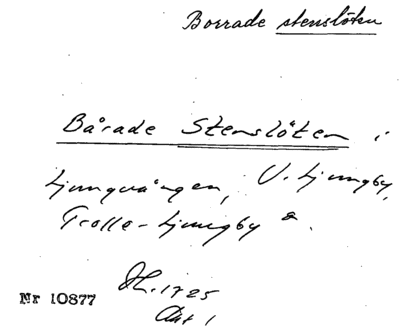 Borrade stenslöten
Bårade Stenslöten i
Ljungvången, V. Ljungby,
Trolle-Ljungby
1725
Akt 1
Nr 10877